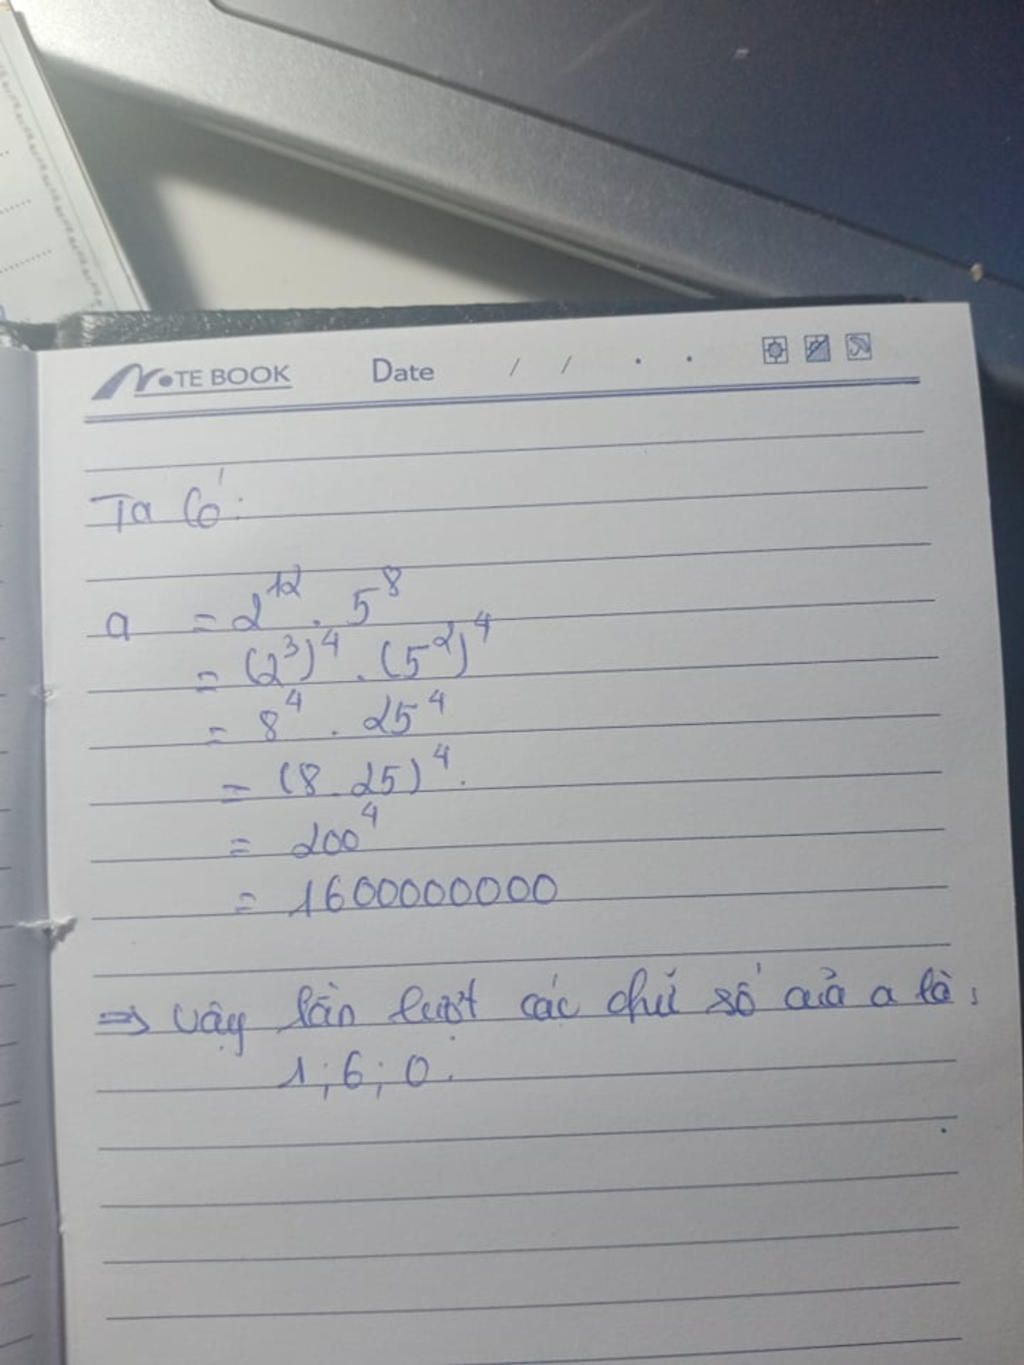 NOTE BOOK Date / / . .
Ta Có:
a = 2^12 . 5^8
= (2^3)^4 . (5^2)^4
= 8^4 . 25^4
= (8 . 25)^4.
= 200^4
= 1600000000
=> Vậy lần lượt các chữ số của a là:
1; 6; 0.